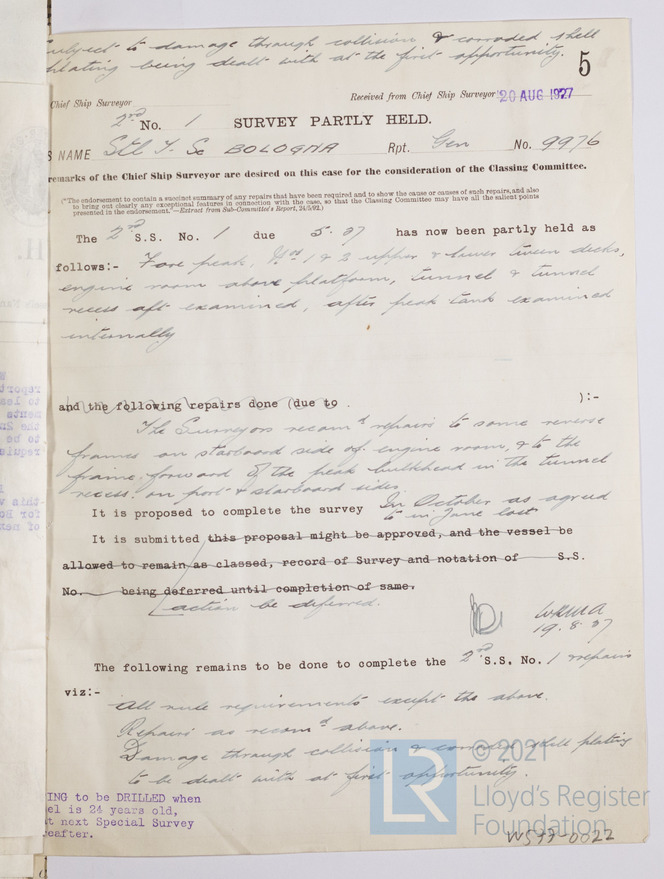 subject to damage through collision & corroded shell
plating being dealt with at the first opportunity.
5
Chief Ship Surveyor
Received from Chief Ship Surveyor 20 AUG 1927
2nd No. 1 SURVEY PARTLY HELD.
S NAME Stl T. Sc BOLOGNA Rpt. Gen No. 9976
remarks of the Chief Ship Surveyor are desired on this case for the consideration of the Classing Committee.
(*The endorsement to contain a succinct summary of any repairs that have been required and to show the cause or causes of such repairs, and also
to bring out clearly any exceptional features in connection with the case, so that the Classing Committee may have all the salient points
presented in the endorsement."—Extract from Sub-Committee's Report, 24/5/92.)
The 2nd S.S. No. 1 due 5.27 has now been partly held as
follows:- Fore peak, Nos 1 & 2 upper & lower tween decks,
engine room above platform, tunnel & tunnel
recess aft examined, after peak tank examined
internally
and the following repairs done (due to . ):-
The Surveyors recomd repairs to some reverse
frames on starboard side of engine room, & to the
frame forward of the peak bulkhead in the tunnel
recess, on port & starboard sides
It is proposed to complete the survey In October as agreed
to in June last
It is submitted this proposal might be approved, and the vessel be
allowed to remain as classed, record of Survey and notation of S.S.
No. being deferred until completion of same.
action be deferred.
19.8.27
The following remains to be done to complete the 2nd S.S. No. 1 & repairs
viz:-
All rule requirements except the above.
Repairs as recomd above.
Damage through collision & corroded shell plating
to be dealt with at first opportunity.
ING to be DRILLED when
el is 24 years old,
t next Special Survey
eafter.
LR
© 2021
Lloyd's Register
Foundation
WS77-0022